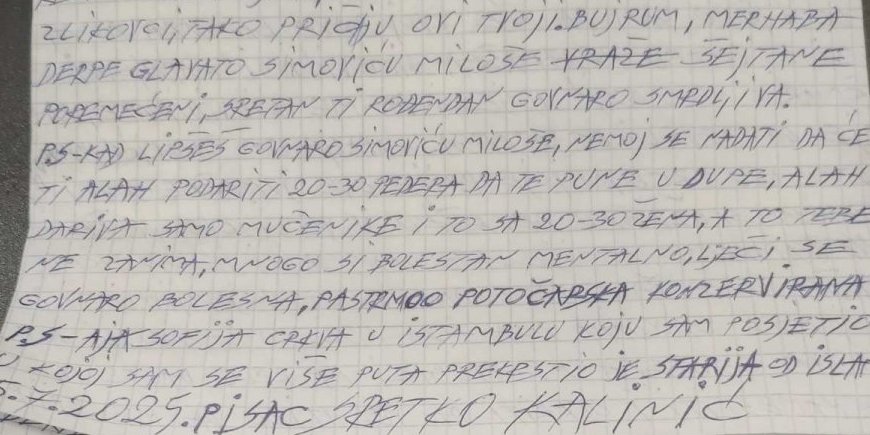 ZLIKOVCI, TAKO PRIČAJU OVI TVOJI. BUJRUM, MERHABA
DERPE GLAVATO SIMOVIĆU MILOŠE VRAŽE ŠEJTANE
POREMEĆENI, SRETAN TI ROĐENDAN GOVNARO SMRDLJIVA.
P.S-KAD LIPŠEŠ GOVNARO SIMOVIĆU MILOŠE, NEMOJ SE NADATI DA ĆE
TI ALAH PODARITI 20-30 PEDERA DA TE PUNE U DUPE, ALAH
DARIVA SAMO MUČENIKE I TO SA 20-30 ŽENA, A TO TEBE
NE ZANIMA, MNOGO SI BOLESTAN MENTALNO, LJEČI SE
GOVNARO BOLESNA, PASTRMOO POTOČARSKA KONZERVIRANA
P.S-AJA SOFIJA CRKVA U ISTAMBULU KOJU SAM POSJETIO
U KOJOJ SAM SE VIŠE PUTA PREKRSTIO JE STARIJA OD ISLA
5.7.2025. PISAC SRETKO KALINIĆ